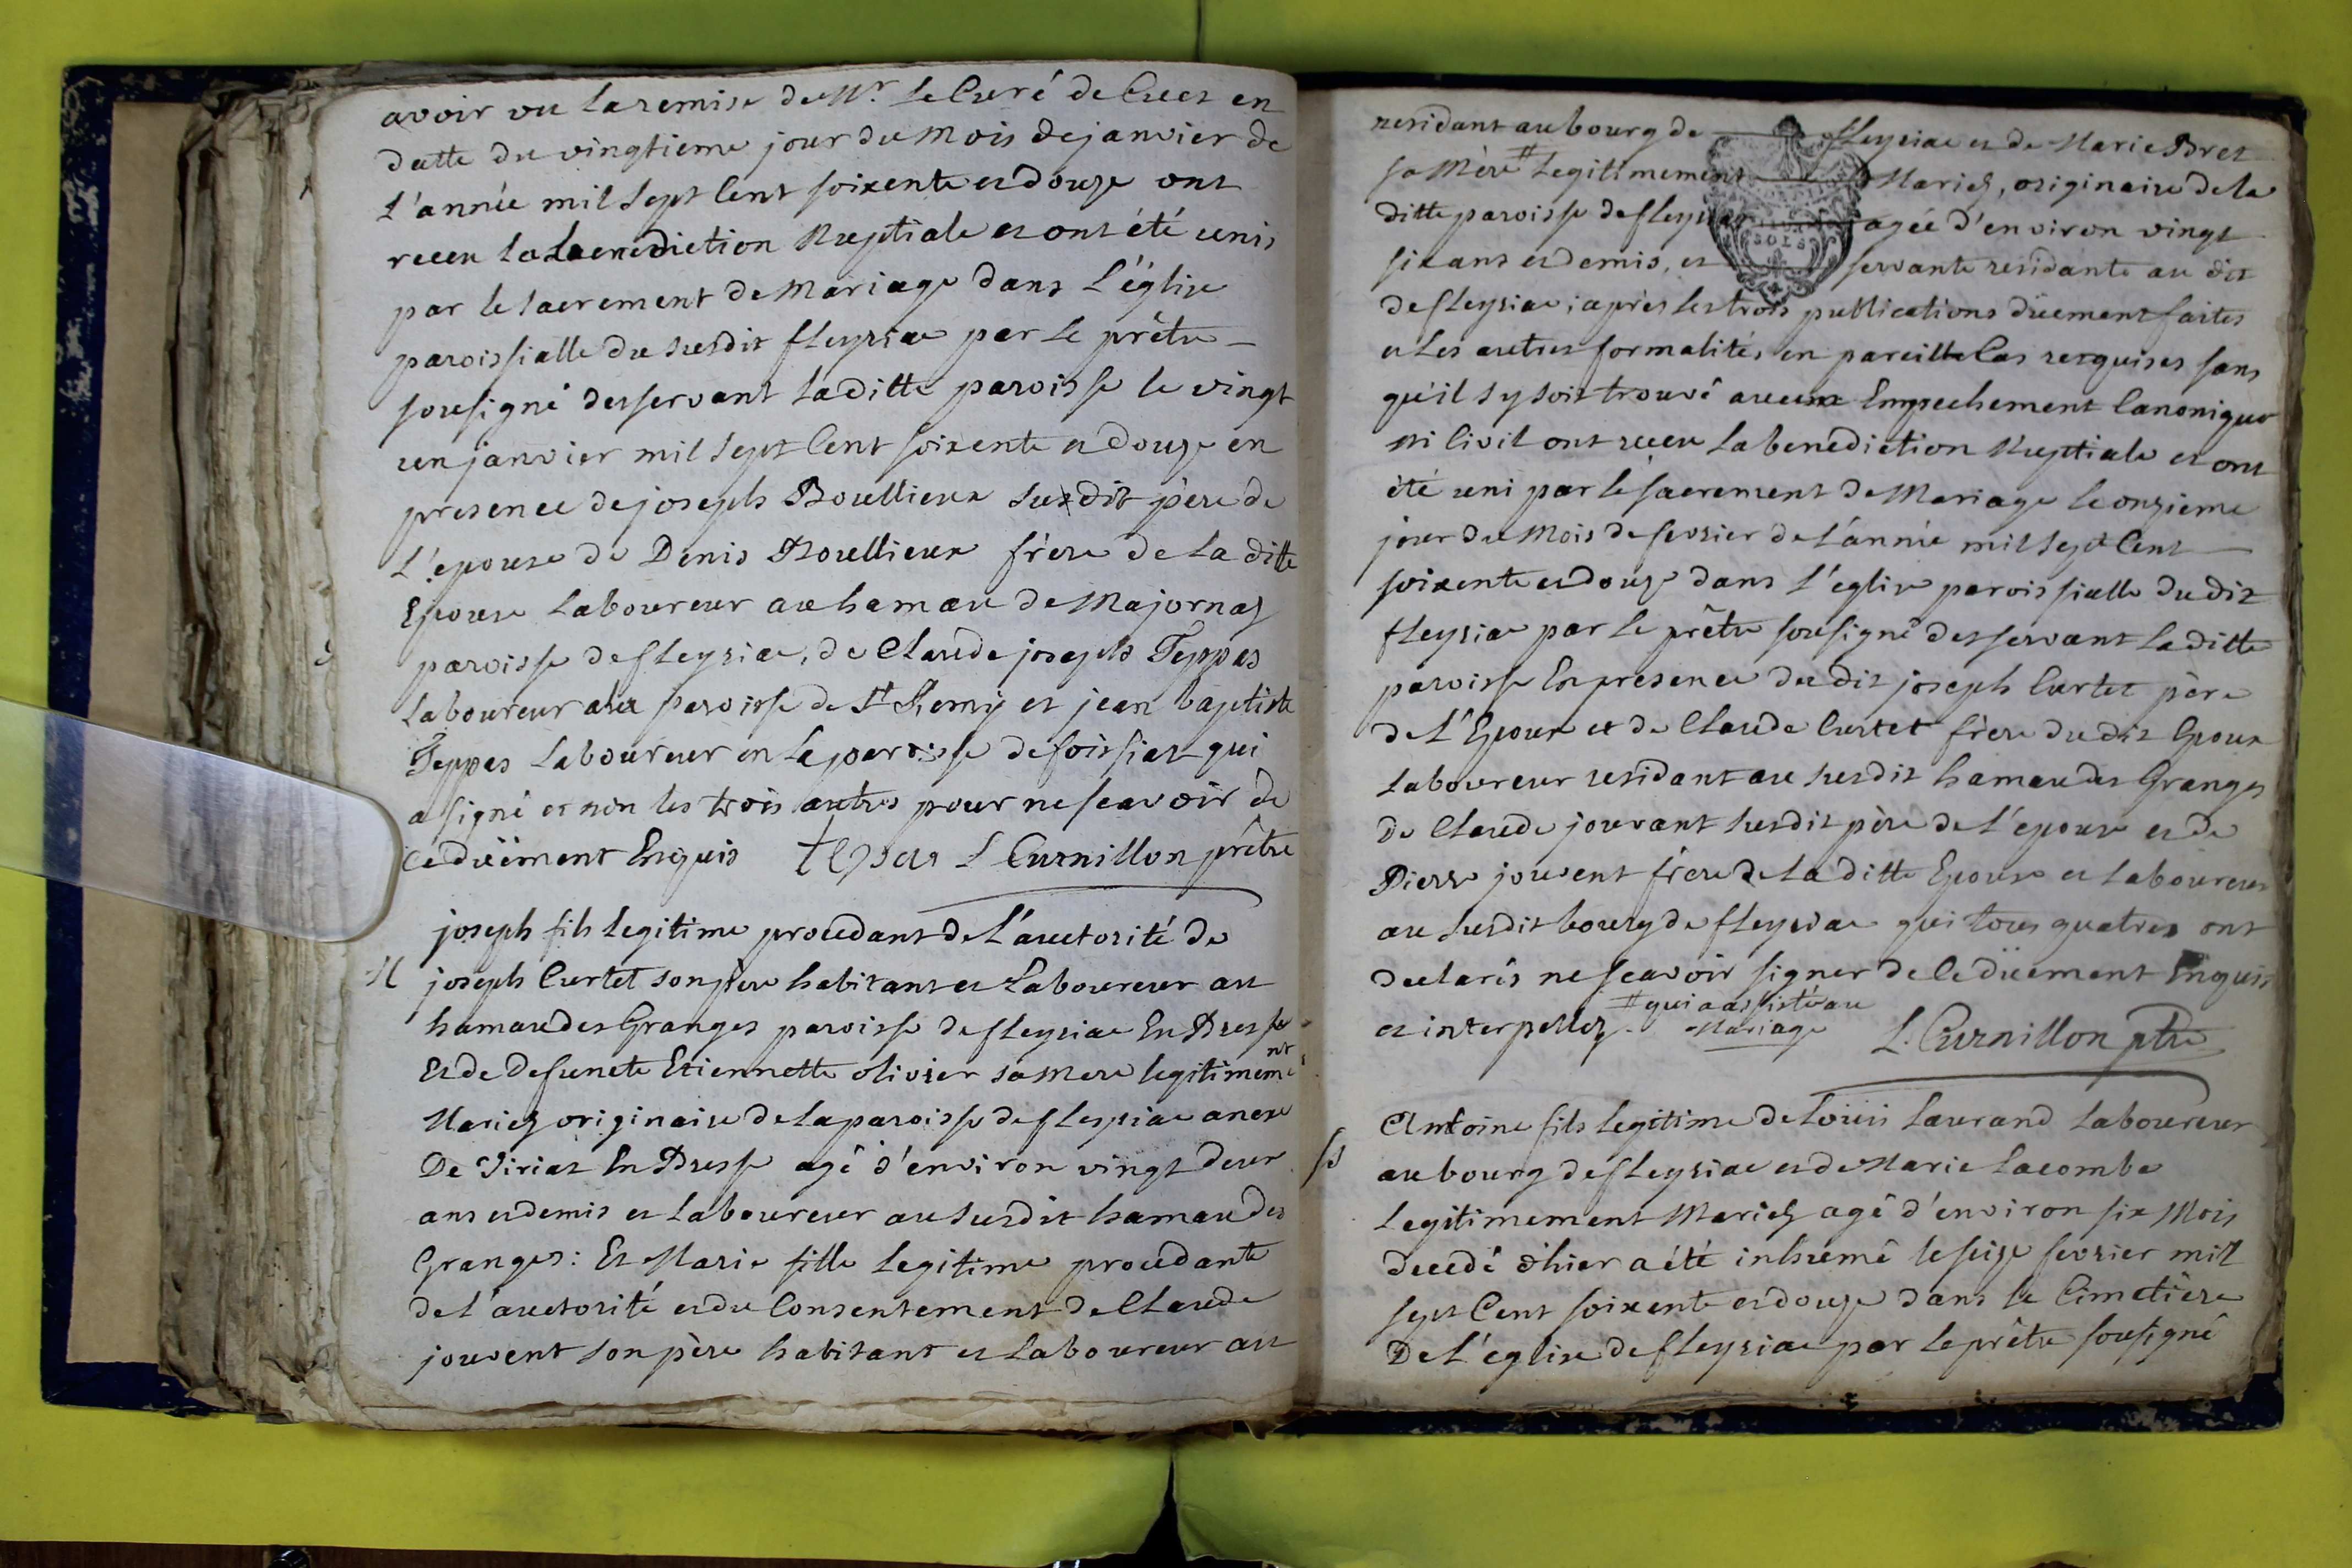 avoir vu la remise de Mr. le Curé de Cuet en
datte du vingtieme jour du mois de janvier de
l'année mil sept Cent soixente et douze ont
receu la benediction Nuptiale et ont été unis
par le sacrement de Mariage dans l'église
paroissialle du susdit fleyriac par le prêtre
sousigné desservant laditte paroisse le vingt
un janvier mil sept Cent soixente et douze en
presence de joseph Boullieux susdit père de
l'epouse de Denis Boullieux frère de la ditte
Epouse Laboureur au hamau de Majornaz
paroisse de fleyriac, de Claude joseph Teppas
Laboureur paroisse de St Remy et jean baptiste
Teppas Laboureur en la paroisse de foissiat qui
a signé et non les trois autres pour ne scavoir de
ce düëment Enquis tepas L Curnillon prêtre
joseph fils legitime procedant de l'auctorité de
M joseph Curtet son père habitant et Laboureur au
hamau des Granges paroisse de fleyriac En Bresse
Et de defuncte Etiennette olivier sa mere legitimement
Mariez originaire de la paroisse de fleyriac anexe
De Viriat En Bresse agé d'environ vingt deux
ans et demis et Laboureur au susdit hamau des
Granges: Et Marie fille legitime procedante
de l'auctorité et du Consentement de Claude
jouvent son père habitant et Laboureur au
residant au bourg de fleyriac et de Marie Bret
sa Mère # Legitimement Mariez, originaire de la
ditte paroisse de fleyriac agée d'environ vingt
six ans et demis, et servante residante au dit
SOLS
de fleyriac; après les trois publications düement faites
et les autres formalités en pareille Cas requises sans
qu'il s'y soit trouvé aucun Empechement Canonique
ni Civil ont receu la benediction Nuptiale et ont
été uni par le sacrement de Mariage le onzieme
jour du Mois de fevrier de l'année mil sept Cent
soixente et douze dans l'eglise paroissialle du dit
fleyriac par le prêtre sousigné desservant laditte
paroisse En presence du dit joseph Curtet père
de l'Epoux et de Claude Curtet frère du dit Epoux
Laboureur residant au susdit hamau des Granges
De Claude jouvant susdit père de l'epouse et de
Pierre jouvent frère de la ditte Epouse et Laboureur
au susdit bourg de fleyriac qui tous quatres ont
declarés ne scavoir signer de ce düement Enquis
et interpellez. # qui a assistée au
Mariage L. Curnillon ptre
Antoine fils legitime de Loüis Laurand Laboureur
au bourg de fleyriac et de Marie Lacombe
Legitimement Mariez agé d'environ six Mois
decedé d'hier a été inhumé le seize fevrier mil
sept Cent soixente et douze dans le Cimetière
De l'église de fleyriac par le prêtre sousigné